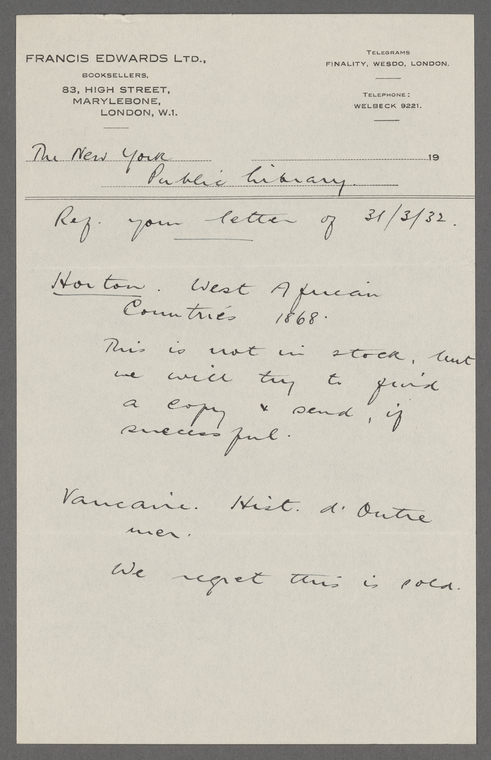 FRANCIS EDWARDS LTD.,
BOOKSELLERS,
83, HIGH STREET,
MARYLEBONE,
LONDON, W.1.
TELEGRAMS
FINALITY, WESDO, LONDON.
TELEPHONE:
WELBECK 9221.
The New York 19
Public Library.
Ref. your letter of 31/3/32.
Horton. West African
Countries 1868.
This is not in stock, but
we will try to find
a copy & send, if
successful.
Vaucaire. Hist. d'Outre
mer.
We regret this is sold.